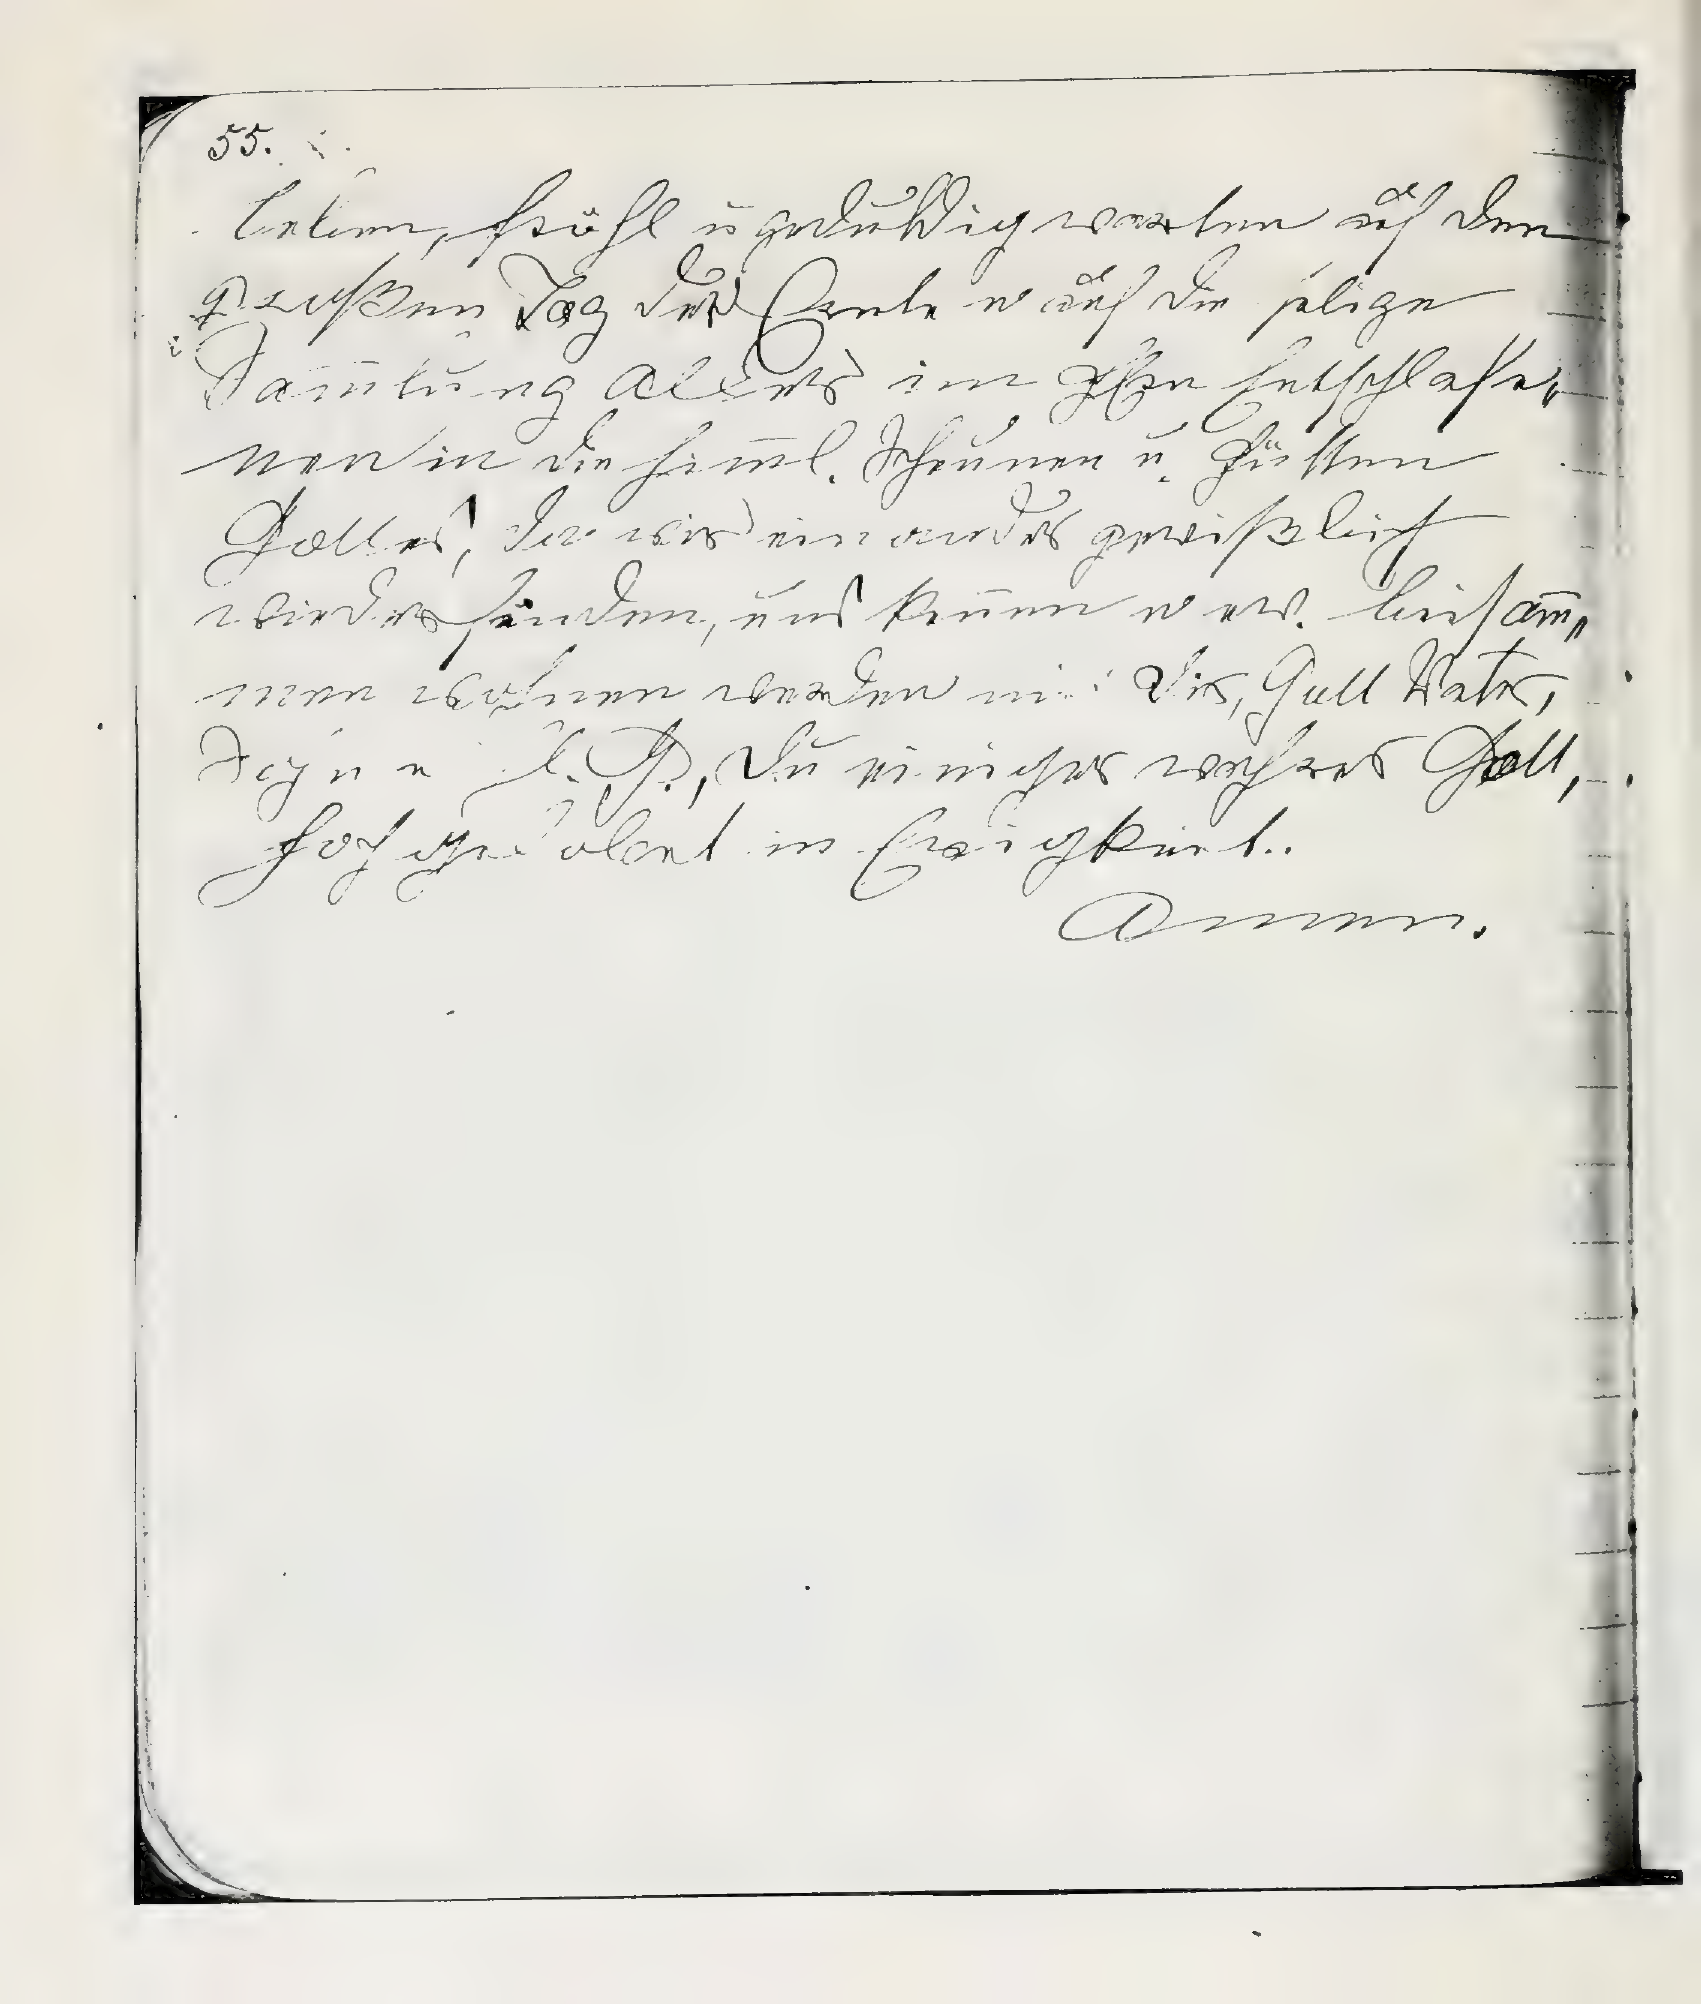 55.
leben, fröhl u geduldig warten auf den
großen Tag der Ernte u auf die selige
Sam̄lung aller im HErrn Entschlafe„
nen in die him̄l. Scheunen u. Hütten
Gottes, da wir einander gewißlich
wiederfinden, uns ken̄en u ew. beisam̄„
men wohnen werden mit Dir, Gott Vater,
Sohn u h. G., Du einiger wahrer Gott,
hochgelobet in Ewigkeit..
Amen.